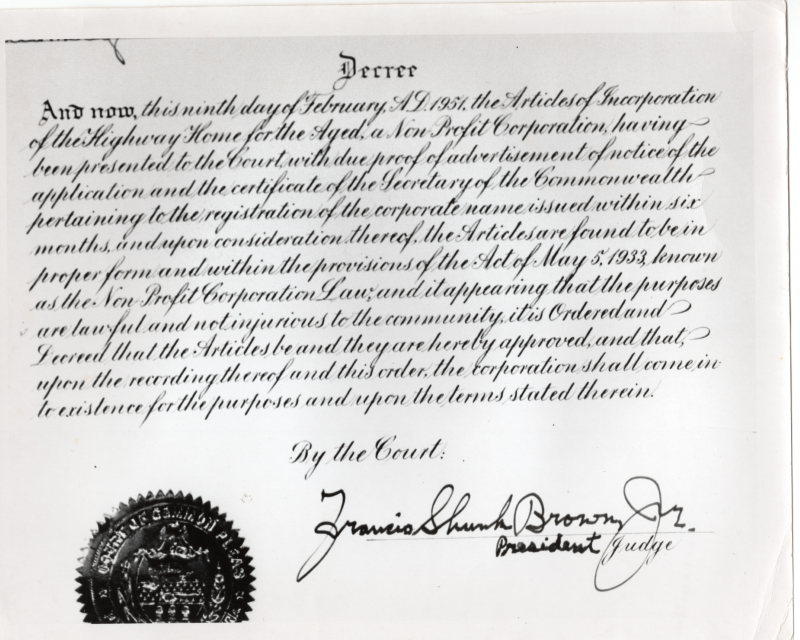 Decree
And now, this ninth day of February, A.D. 1951, the Articles of Incorporation
of the Highway Home for the Aged, a Non Profit Corporation, having
been presented to the Court, with due proof of advertisement of notice of the
application and the certificate of the Secretary of the Commonwealth
pertaining to the registration of the corporate name issued within six
months, and upon consideration thereof, the Articles are found to be in
proper form and within the provisions of the Act of May 5, 1933, known
as the Non-Profit Corporation Law; and it appearing that the purposes
are lawful and not injurious to the community, it is Ordered and
Decreed that the Articles be and they are hereby approved, and that,
upon the recording thereof and this order, the corporation shall come in
to existence for the purposes and upon the terms stated therein.
By the Court:
Francis Shunk Brown, Jr.
President Judge
COURT OF COMMON PLEAS